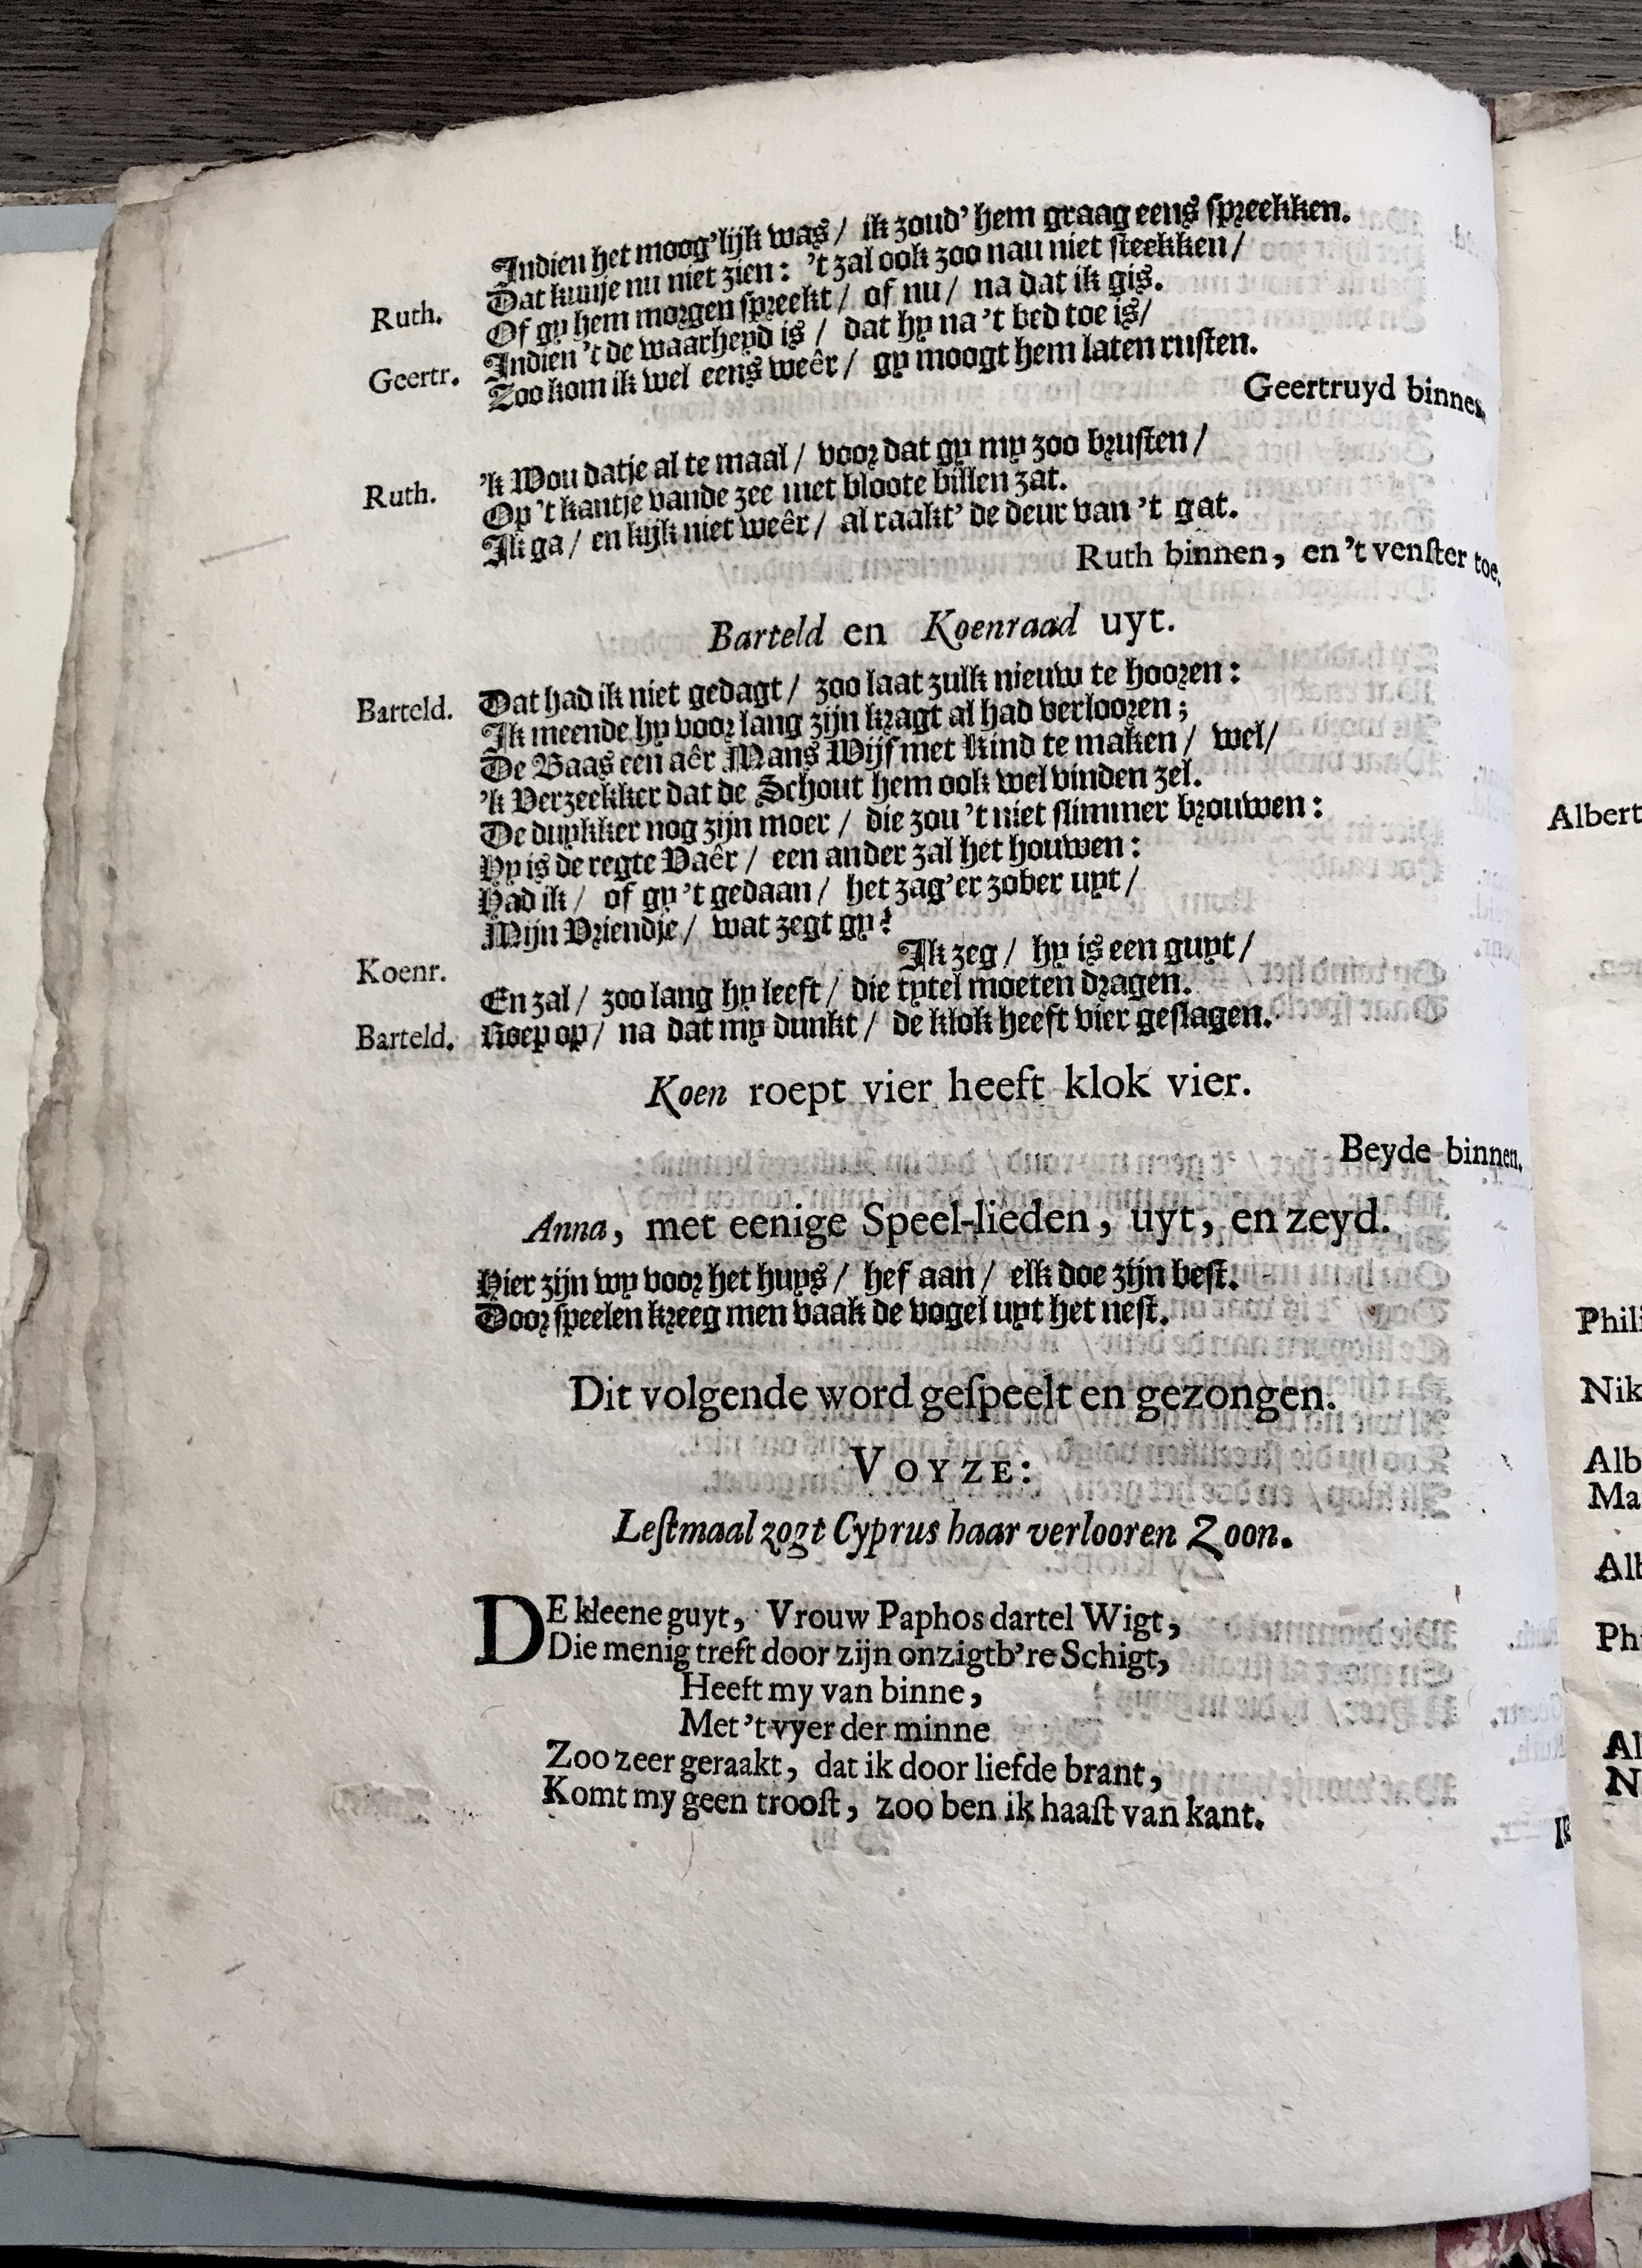 Indien het moog'lijk was/ ik zoud' hem graag eens spreekken.
Ruth. Dat kunje nu niet zien: 't zal ook zoo nau niet steekken/
Of gy hem morgen spreekt/ of nu/ na dat ik gis.
Geertr. Indien 't de waarheyd is/ dat hy na 't bed toe is/
Zoo kom ik wel eens weêr/ gy moogt hem laten rusten.
Geertruyd binnen.
Ruth. 'k Wou datje al te maal/ voor dat gy my zoo brusten/
Op 't kantje vande zee met bloote billen zat.
Ik ga/ en kijk niet weêr/ al raakt' de deur van 't gat.
Ruth binnen, en 't venſter toe.
Barteld en Koenraad uyt.
Barteld. Dat had ik niet gedagt/ zoo laat zulk nieuw te hooren:
Ik meende hy voor lang zijn kragt al had verlooren;
De Baas een aêr Mans Wijf met Kind te maken/ wel/
'k Verzeekker dat de Schout hem ook wel vinden zel.
De duykker nog zijn moer/ die zou 't niet slimmer brouwen:
Hy is de regte Vaêr/ een ander zal het houwen:
Had ik/ of gy 't gedaan/ het zag'er zober uyt/
Mijn Vriendje/ wat zegt gy?
Koenr. Ik zeg/ hy is een guyt/
En zal/ zoo lang hy leeft/ die tytel moeten dragen.
Barteld. Roep op/ na dat my dunkt/ de klok heeft vier geslagen.
Koen roept vier heeft klok vier.
Beyde binnen.
Anna, met eenige Speel-lieden, uyt, en zeyd.
Hier zijn wy voor het huys/ hef aan/ elk doe zijn best.
Door speelen kreeg men vaak de vogel uyt het nest.
Dit volgende word geſpeelt en gezongen.
VOYZE:
Leſtmaal zogt Cyprus haar verlooren Zoon.
DE kleene guyt, Vrouw Paphos dartel Wigt,
Die menig treft door zijn onzigtb're Schigt,
Heeft my van binne,
Met 't vyer der minne
Zoo zeer geraakt, dat ik door liefde brant,
Komt my geen trooſt, zoo ben ik haaſt van kant.
Albert
Phili
Nik
Alb
Ma
Alb
Phi
Al
N